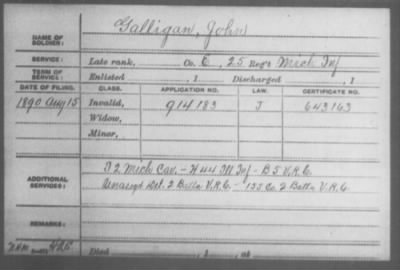 NAME OF SOLDIER: Galligan, John
SERVICE: Late rank, Co. E, 25 Reg't Mich Inf
TERM OF SERVICE: Enlisted , 1 Discharged , 1
DATE OF FILING. CLASS. APPLICATION NO. LAW. CERTIFICATE NO.
1890 Aug 15 Invalid, 914183 J 643163
Widow,
Minor,
ADDITIONAL SERVICES: 2 Mich Cav. – H 44 Ill Inf – B 5 V.R.C.
Unassgd Det. 2 Batt. V.R.C. – 135 Co. 2 Batt. V.R.C.
REMARKS:
Died , 1 , at